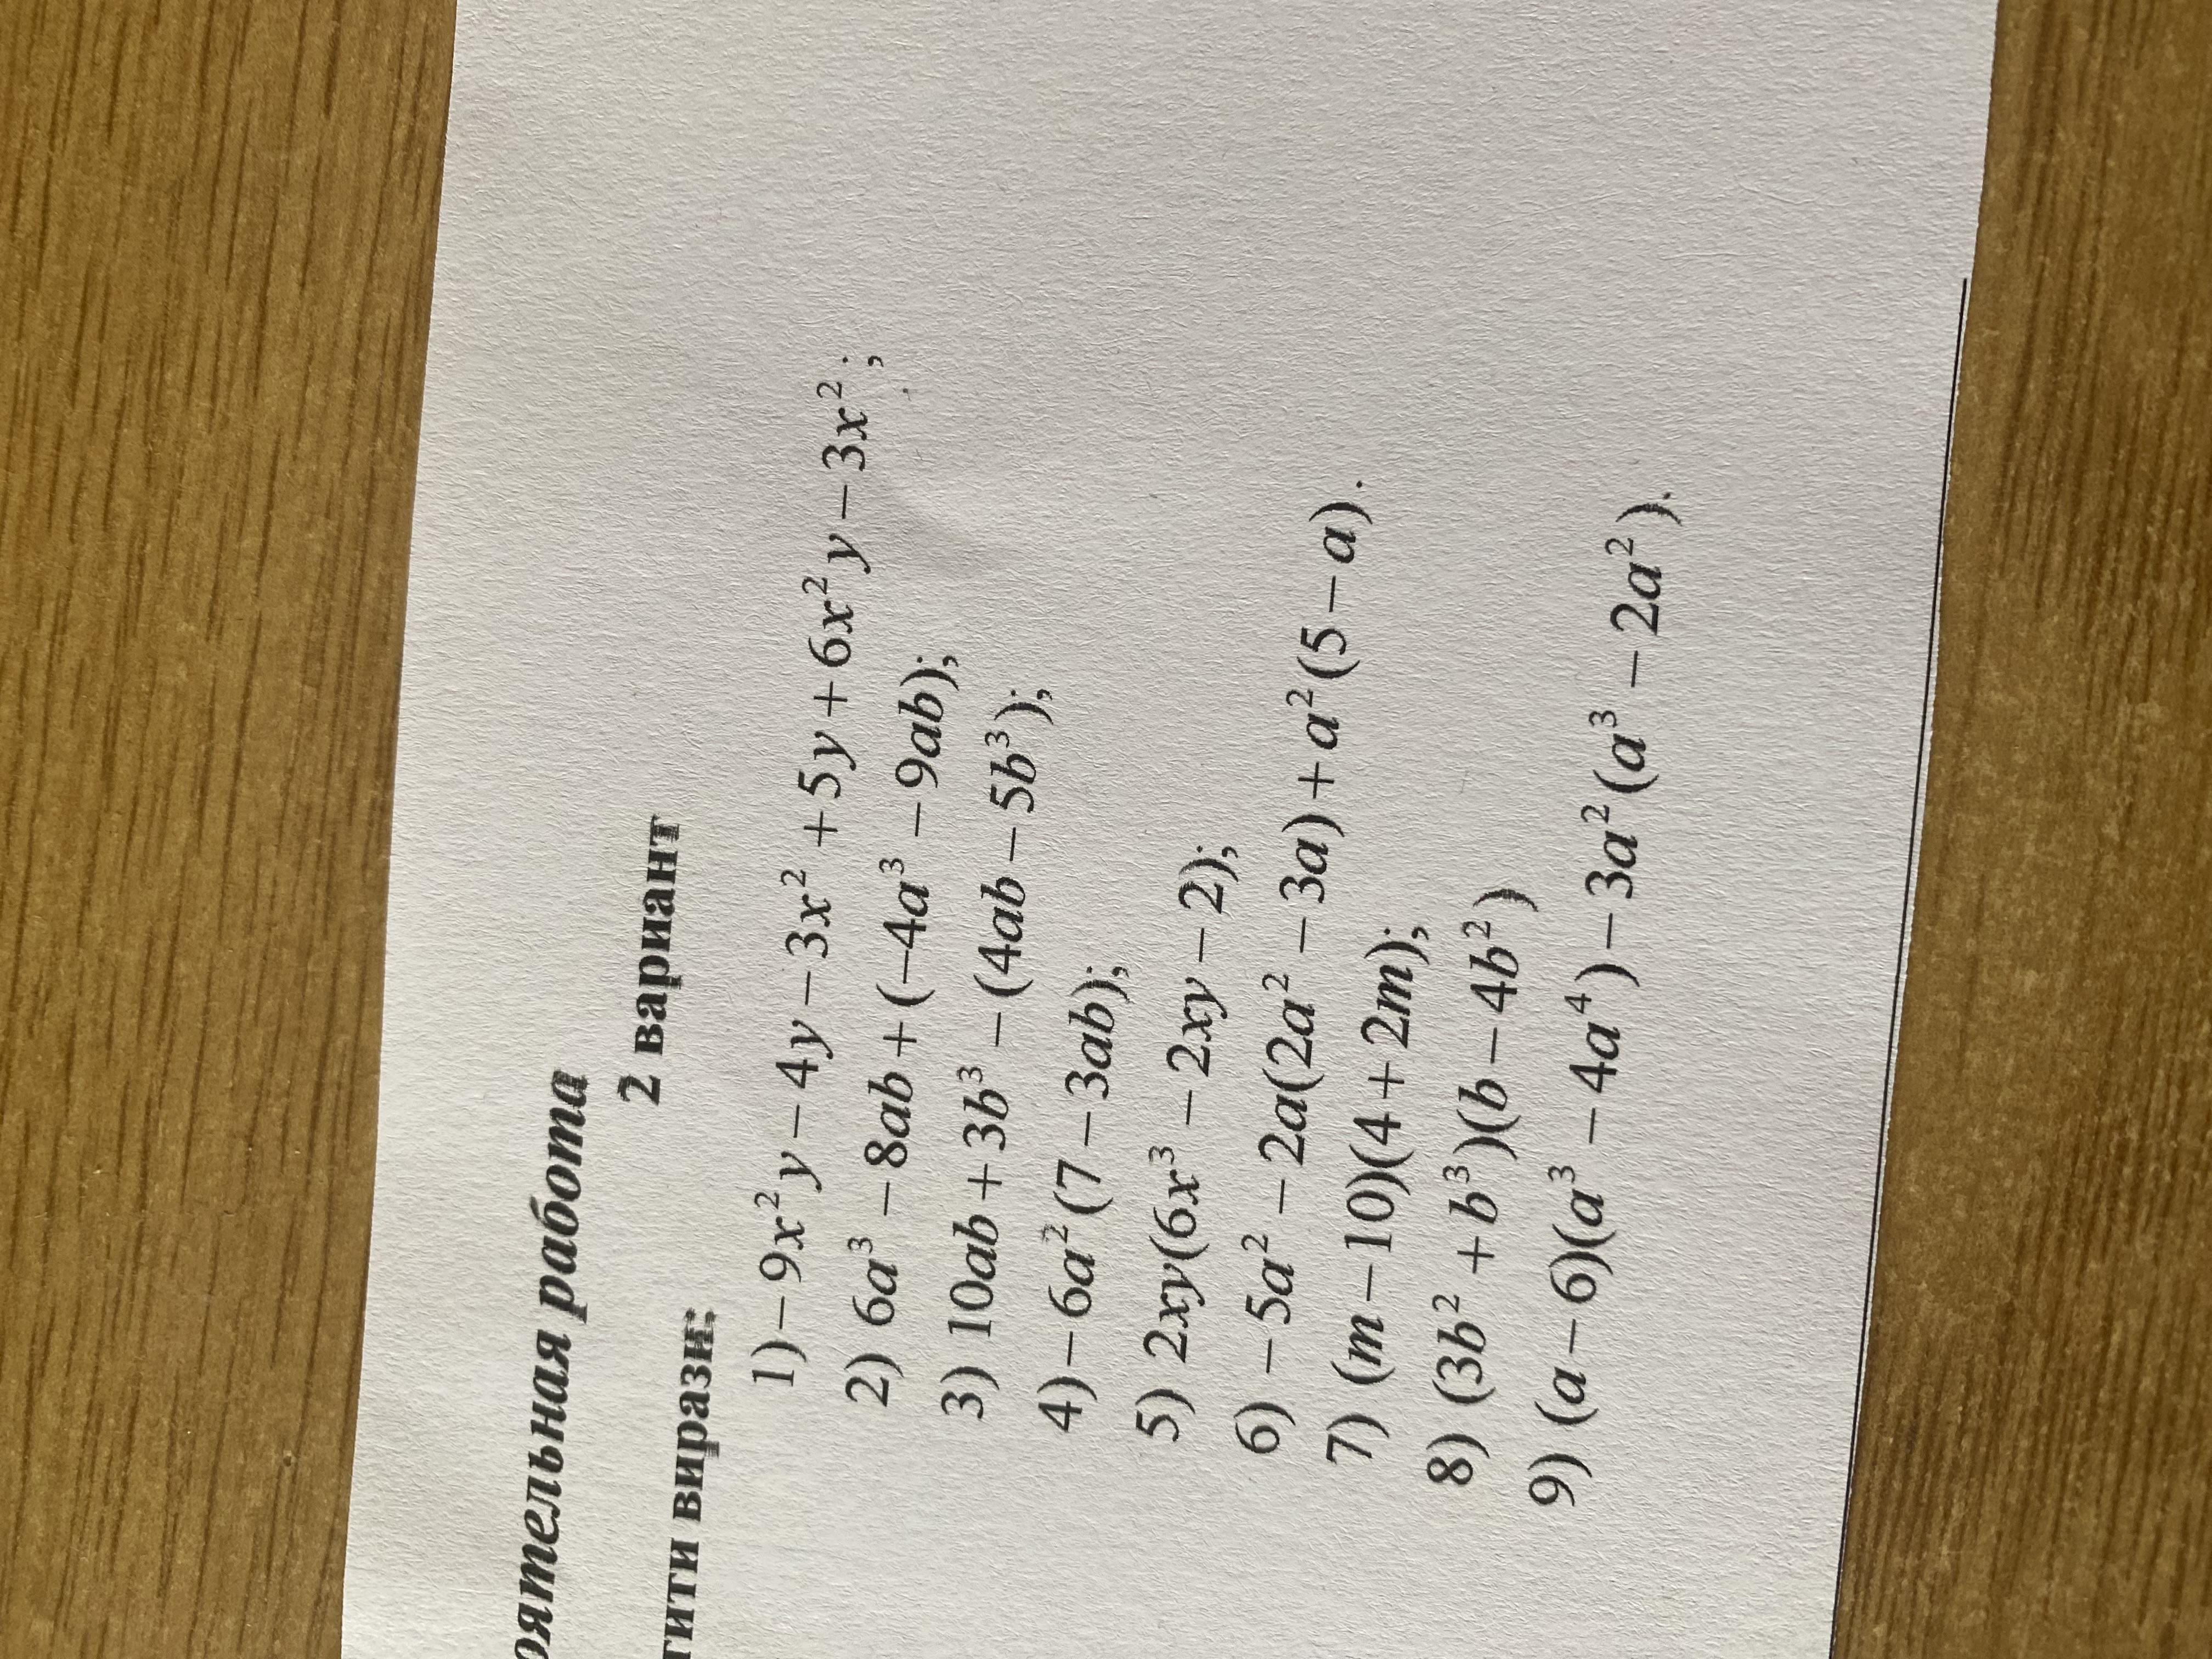 работа
2 вариант
вирази:
1) −9x²y − 4y − 3x² + 5y + 6x²y − 3x²;
2) 6a³ − 8ab + (−4a³ − 9ab);
3) 10ab + 3b³ − (4ab − 5b³);
4) −6a²(7 − 3ab);
5) 2xy(6x³ − 2xy − 2);
6) −5a² − 2a(2a² − 3a) + a²(5 − a).
7) (m − 10)(4 + 2m);
8) (3b² + b³)(b − 4b²)
9) (a − 6)(a³ − 4a⁴) − 3a²(a³ − 2a²).